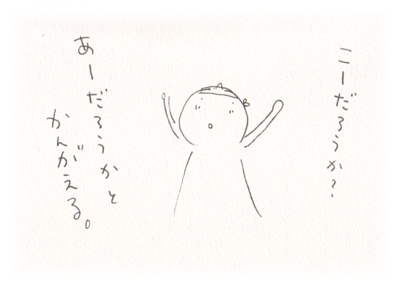 こーだろうか?
あーだろうかと
かんがえる。